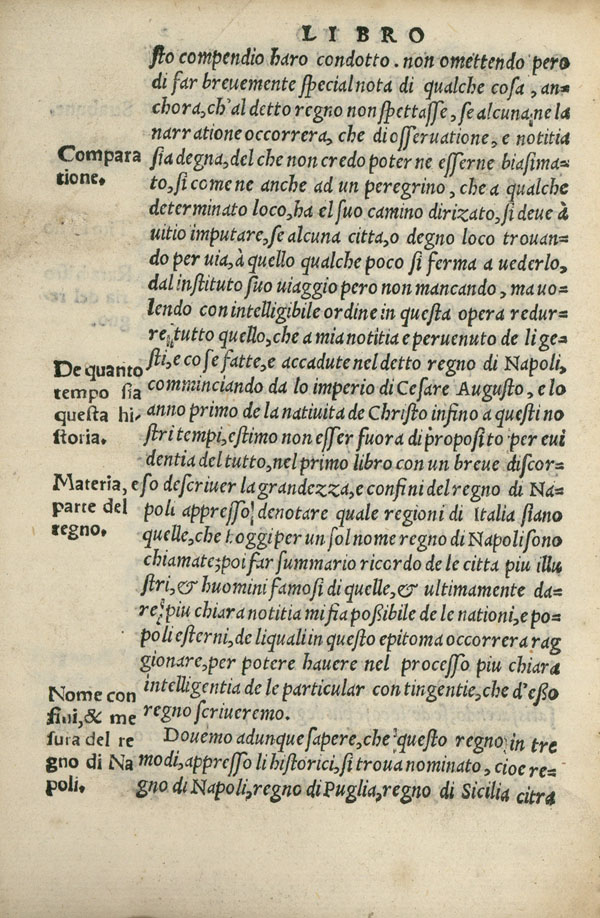 LIBRO
sto compendio haro condotto. non omettendo pero
di far brevemente special nota di qualche cosa, an-
chora, ch'al detto regno non spettasse, se alcuna ne la
narratione occorrera, che di osseruatione, e notitia
Compara
tione.
sia degna, del che non credo poterne esserne biasima-
to, si come ne anche ad un peregrino, che a qualche
determinato loco, ha el suo camino dirizato, si deue à
uitio imputare, se alcuna citta, o degno loco trouan-
do per uia, à quello qualche poco si ferma a uederlo,
dal instituto suo uiaggio pero non mancando, ma uo-
lendo con intelligibile ordine in questa opera redur-
re tutto quello, che a mia notitia e peruenuto de li ge-
sti, e cose fatte, e accadute nel detto regno di Napoli,
De quanto
tempo sia
questa hi-
storia.
comminciando da lo imperio di Cesare Augusto, e lo
anno primo de la natiuita de Christo infino a questi no
stri tempi, estimo non esser fuora di proposito per eui
dentia del tutto, nel primo libro con un breue discor-
Materia, e
parte del
regno.
so descriuer la grandezza, e confini del regno di Na-
poli appresso denotare quale regioni di Italia siano
quelle, che hoggi per un sol nome regno di Napoli sono
chiamate; poi far summario ricordo de le citta piu illu
stri, & huomini famosi di quelle, & ultimamente da-
re piu chiara notitia mi fia poßibile de le nationi, e po-
poli esterni, de li quali in questo epitoma occorrera rag
gionare, per potere hauere nel processo piu chiara
intelligentia de le particular contingentie, che d'eßo
regno scriueremo.
Nome con
fini, & me
sura del re
gno di Na
poli.
Douemo adunque sapere, che questo regno in tre
modi, appresso li historici, si troua nominato, cioe re-
gno di Napoli, regno di Puglia, regno di Sicilia citra